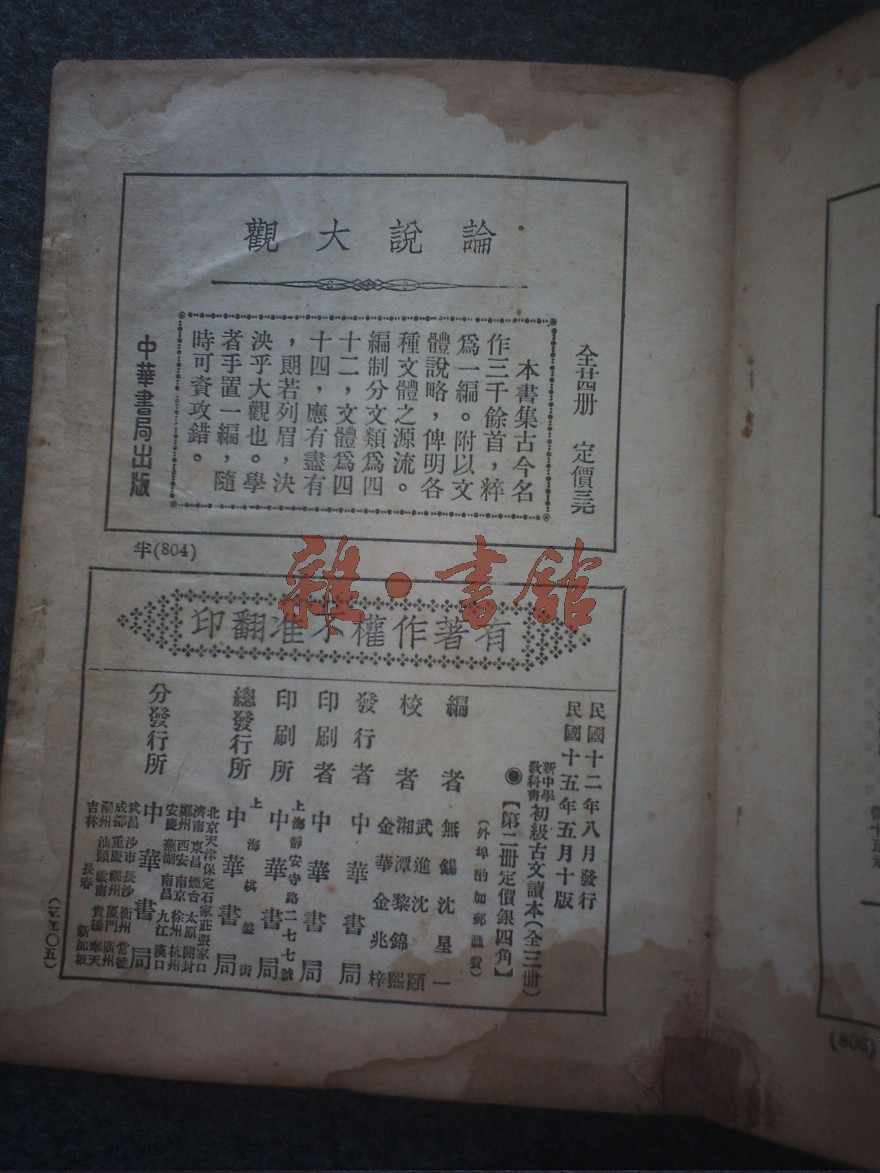 論說大觀
全廿四册　定價三元
本書集古今名
作三千餘首，粹
爲一編。附以文
體說略，俾明各
種文體之源流。
編制分文類爲四
十二，文體爲四
十四，應有盡有
，朗若列眉，決
泱乎大觀也。學
者手置一編，隨
時可資攻錯。
中華書局出版
半(804)
雜·書館
有著作權不准翻印
民國十二年八月發行
民國十五年五月十版
新中學教科書初級古文讀本(全三册)
◉【第二册定價銀四角】
(外埠酌加郵匯費)
編者　無錫沈星一
校者　武進沈頤
湘潭黎錦熙
金華金兆梓
發行者　中華書局
印刷者　中華書局
印刷所　上海靜安寺路二七七號中華書局
總發行所　上海棋盤街中華書局
分發行所　中華書局
北京天津保定石家莊張家口
濟南東昌煙台太原開封
鄭州西安南京徐州杭州
安慶蕪湖南昌九江漢口
武昌沙市長沙衡州常德
成都重慶福州廈門廣州
潮州汕頭雲南貴陽奉天
吉林長春新加坡
(808)